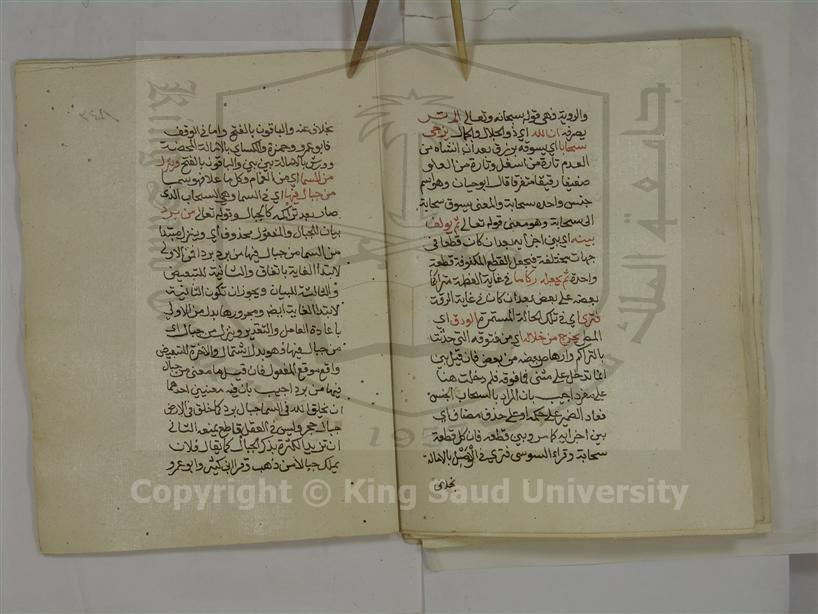 والروية ففي قوله سبحانه وتعالى الم تر
يصرفه ان الله اي ذو الجلال والكمال يزجي
سحابا اي يسوقه برزق بعد ان انشاه من
العدم تارة من اسفل وتارة من العلو
ضعيفا رقيقا متفرقا قال ابو حيان وهو اسم
جنس واحده سحابة والمعنى يسوق سحابة
الى سحابة وهو معنى قوله تعالى ثم يولف
بينه اي بين اجزايه بعد ان كان قطعا في
جهات مختلفة فيجعل القطع المتفرقة قطعة
واحدة ثم يجعله ركاما في غاية العظمة متراكما
بعضه على بعض بعد ان كان في غاية الرقة
فترى اي في تلك الحالة المستمرة الودق اي
المطر يخرج من خلاله اي من فتوقه التي حدثت
بالتراكم وارهاص بعضه من بعض فان قيل بين
انما تدخل على مثنى فما فوقه فلم دخلت هنا
على مفرد اجيب بان المراد بالسحاب الجنس
فعاد الضمير على حكمه وعلى حذف مضاف اي
بين اجزايه كما مر وبين قطعه فان كل قطعة
سحابة وقراء السوسي فترى في الوصل بالامالة
بخلاف
بخلاف عنه والباقون بالفتح واما في الوقف
فابو عمرو وحمزة والكساي بالامالة المحضة
وورش بالامالة بين بين والباقون بالفتح وينزل
من السما اي من الغمام وكل ما علا فهو سما
من جبال فيها اي في السما وهي السحاب الذي
صار بعد تراكمه كالجبال وقوله تعالى من برد
بيان للجبال والمفعول محذوف اي وينزل مبتديا
من السما من جبال فيها من برد بردا فمن الاولى
لابتدا الغاية باتفاق والثانية للتبعيض
والثالثة للبيان ويجوز ان تكون الثانية
لابتدا الغاية ايضا ومجرورها بدل من الاولى
باعادة العامل والتقدير وينزل من جبال اي
من جبال فيها فهو بدل اشتمال والاخيرة للتبعيض
واقع موقع المفعول فان قيل ما معنى من جبال
فيها من برد اجيب بان فيه معنيين احدهما
ان يخلق الله في السما جبال برد كما خلق في الارض
جبال حجر وليس في العقل قاطع يمنعه الثاني
ان يريد الكثرة بذكر الجبال كما يقال فلان
يملك جبالا من ذهب وقرا ابن كثير وابو عمرو
Copyright © King Saud University